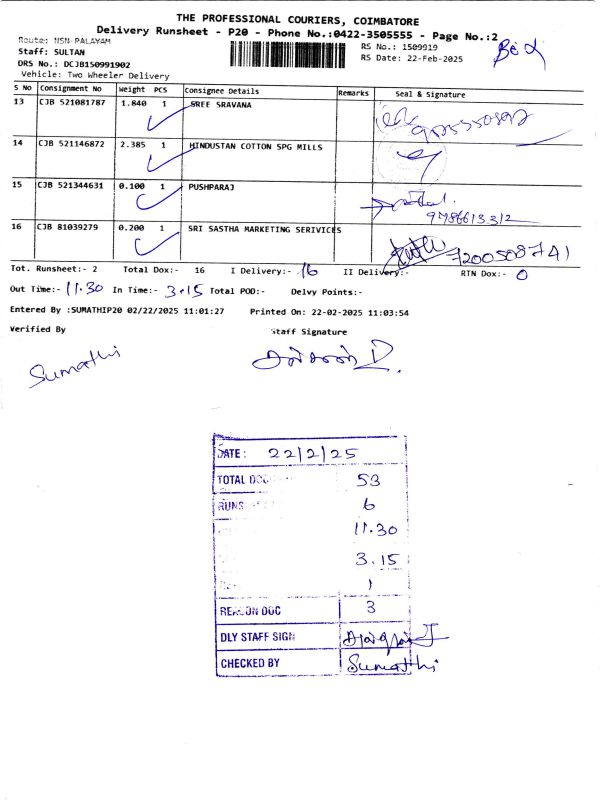 THE PROFESSIONAL COURIERS, COIMBATORE
Delivery Runsheet - P20 - Phone No.:0422-3505555 - Page No.:2
Route: NSN-PALAYAM
RS No.: 1509919
Staff: SULTAN
RS Date: 22-Feb-2025
DRS No.: DCJB150991902
Vehicle: Two Wheeler Delivery
S No Consignment No Weight PCS Consignee Details Remarks Seal & Signature
13 CJB 521081787 1.840 1 SREE SRAVANA
14 CJB 521146872 2.385 1 HINDUSTAN COTTON SPG MILLS
15 CJB 521344631 0.100 1 PUSHPARAJ
9786613312
16 CJB 81039279 0.200 1 SRI SASTHA MARKETING SERIVICES
7200508741
Tot. Runsheet:- 2 Total Dox:- 16 I Delivery:- 16 II Delivery:- RTN Dox:- 0
Out Time:- 11.30 In Time:- 3.15 Total POD:- Delvy Points:-
Entered By :SUMATHIP20 02/22/2025 11:01:27 Printed On: 22-02-2025 11:03:54
Verified By Staff Signature
Sumathi
DATE: 22/2/25
TOTAL DOC 53
RUNS 6
11.30
3.15
1
REASON DOC 3
DLY STAFF SIGN
CHECKED BY Sumathi